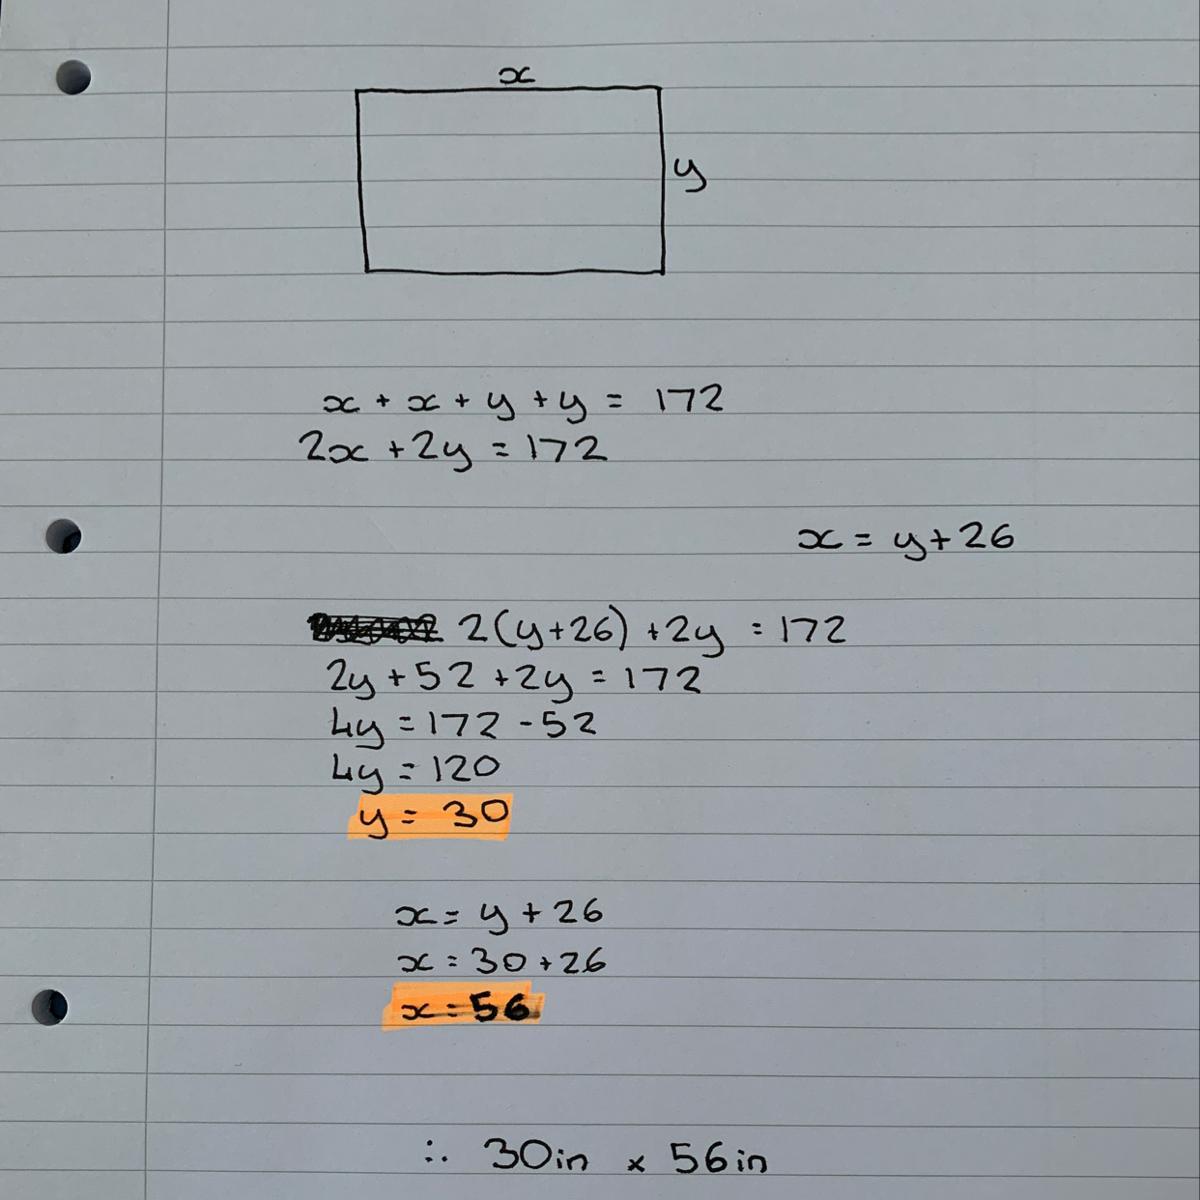 x
y
x + x + y + y = 172
2x + 2y = 172
x = y + 26
2(y+26) + 2y = 172
2y + 52 + 2y = 172
4y = 172 - 52
4y = 120
y = 30
x = y + 26
x = 30 + 26
x = 56
∴ 30in × 56in